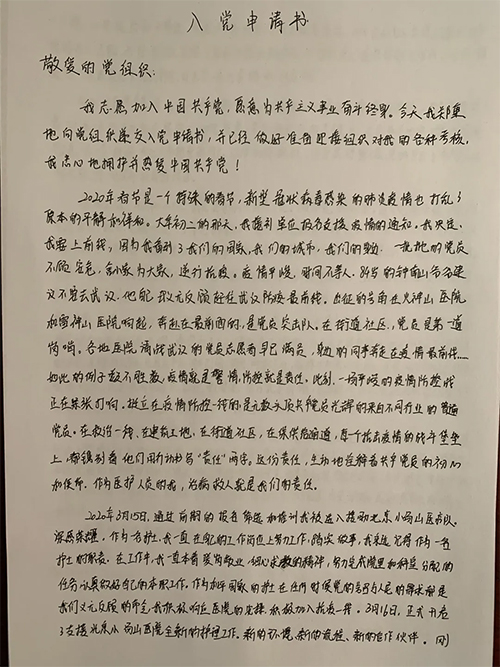 入党申请书
敬爱的党组织:
我志愿加入中国共产党,愿意为共产主义事业奋斗终身。今天我郑重
地向党组织递交入党申请书,并已经做好准备迎接组织对我的各种考核,
我忠心地拥护并热爱中国共产党!
2020年春节是一个特殊的春节,新型冠状病毒感染的肺炎疫情也打乱了
原本的平静和祥和。大年初二的那天,我看到单位报名支援疫情的通知。我决定,
我要上前线,因为我看到了我们的国家,我们的城市,我们的 一批批的党员
不顾安危,舍小家为大家,逆行抗疫。疫情严峻,时间不等人,84岁的钟南山
不要去武汉,他自己却义无反顾赶往武汉防疫最前线。出征的号角在火神山医院
和雷神山医院响起,奔赴在最前面的,是党员突击队。在街道社区,党员是第一道
岗哨。各地医院请战武汉的党员志愿者早已满员,身边的同事奔走在疫情最前线......
如此的例子数不胜数,疫情就是警情,防控就是责任。此刻,一场严峻的疫情防控战
正在紧张打响。挺立在疫情防控一线的,是无数头顶共产党员光辉的来自不同行业的普通
党员。在救治一线,在建筑工地,在街道社区,在保供应通道,每个抗击疫情的战斗堡垒
上,都镌刻着他们用行动书写"责任"两字。这份责任,生动地诠释着共产党员的初心
和使命。作为医护人员的我,治病救人就是我们的责任。
2020年3月15日,通过前期的报名筛选和培训我被选入援助北京小汤山医疗队,
深感荣耀。作为一名护士,我一直在自己的工作岗位上努力工作,踏实做事,我永远记得作为一名
护士的职责。在工作中,我一直本着爱岗敬业、细心求教的精神,努力完成院里和科室分配的
任务认真做好自己的本职工作。作为和平国家的护士在任何时候党的号召与人民的需求都是
我们义无反顾的 我积极响应医院的安排 积极加入抗疫一线。3月16日,正式开启
了支援北京小汤山医院全新的护理工作。新的环境、新的流程、新的合作伙伴。刚